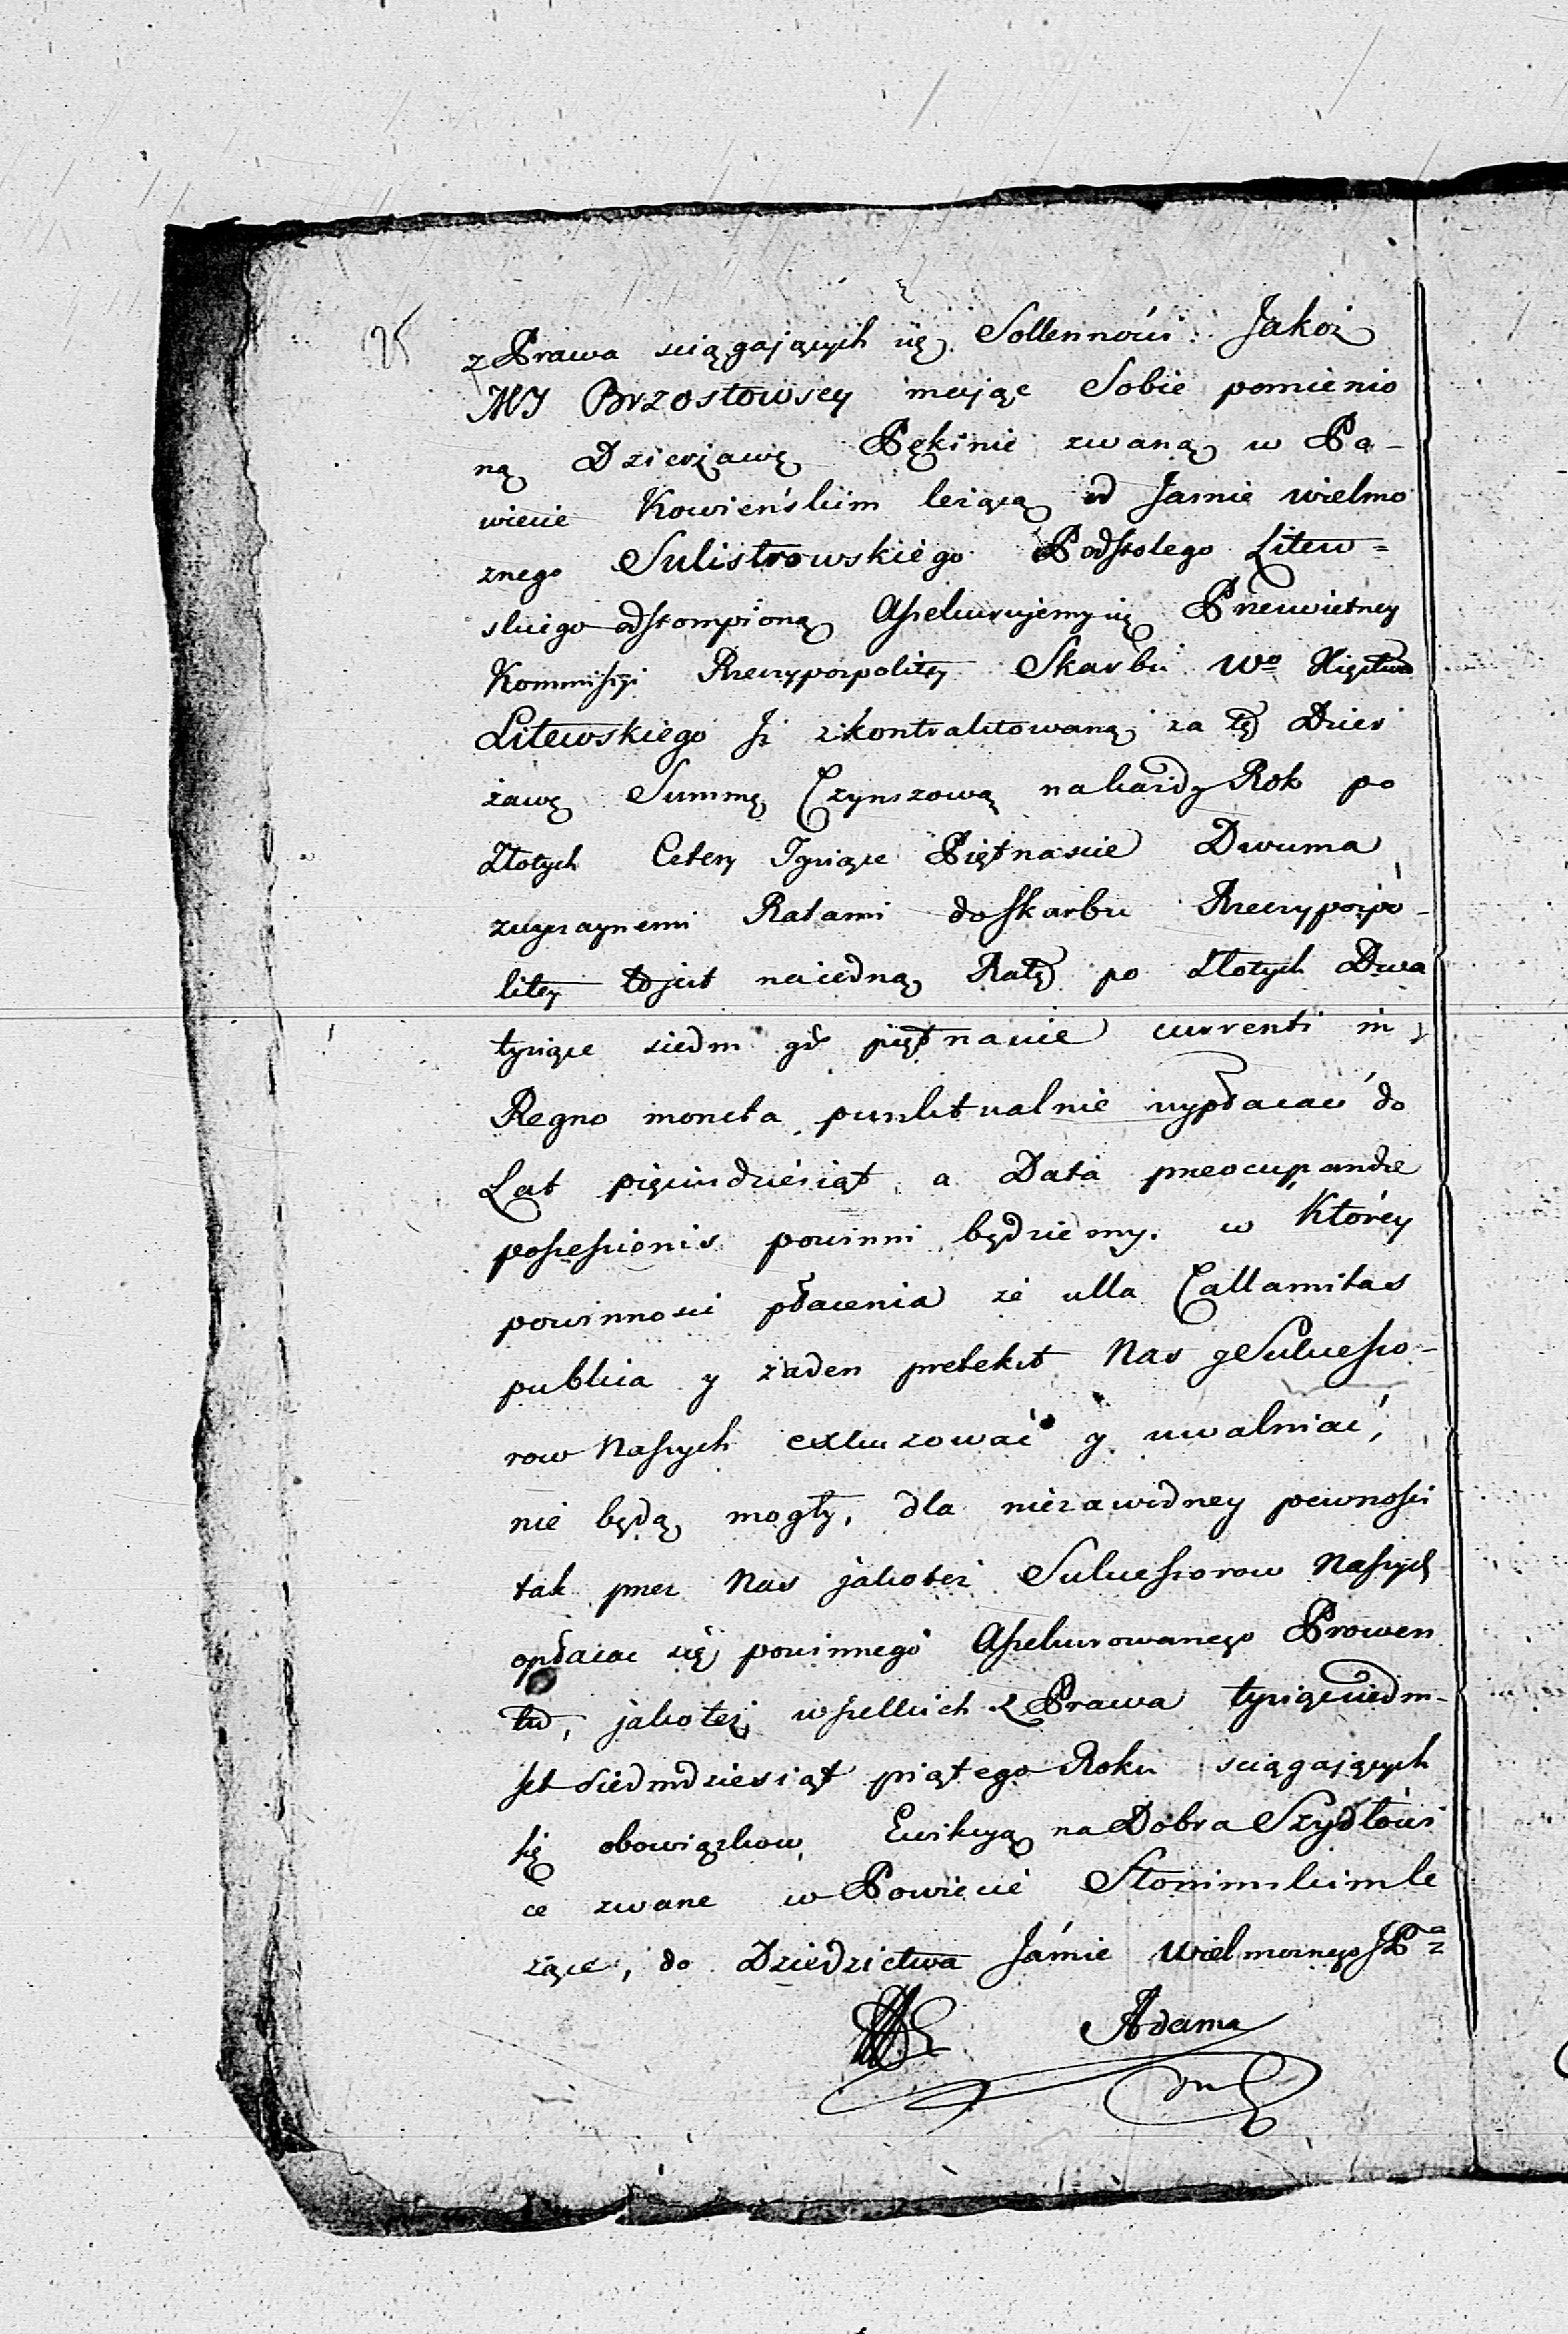 z Prawa sciągaiących się Sollennosci. Jakoż
MY Brzostowscy mając Sobie pomienio
ną Dzierżawę Pękinie zwaną w Po-
wiecie Kowieńskim leżącą od Jasnie wielmo
znego Sulistrowskiego Podstolego Litew=
skiego odstompioną Assekurujemy się Prześwietney
Kommissyi Rzeczypospolitey Skarbu Wo Xięstwa
Litewskiego Jż zkontraktowaną za tę Dzier
żawę Summę Czynszową na każdy Rok po
Złotych Cztery Tysiące Piętnascie Dwuma
zwyczaynemi Ratami do Skarbu Rzeczypospo-
litey to jest na iedną Ratę po Złotych Dwa
tysiące siedm gr piętnascie currenti in
Regno moneta punktualnie wypłacać do
Lat pięcindziesiąt a Data preocupandæ
possessionis powinni będziemy. w Którey
powinnosci płacenia że ulla Callamitas
publica y żaden pretekst Nas y Sukcesso-
row Naszych exkuzować y uwalniać,
nie będą mogły, dla niezawodney pewnosci
tak przez Nas jakoteż Sukcessorow Naszych
opłacac się powinnego Assekurowanego Prowen
tu, jakoteż wszelkich z Prawa tysiącsiedm-
set siedmdziesiąt piątego Roku sciągających
się obowiązkow, Ewikcyą na Dobra Szydłowi
ce zwane w Powiecie Słonimskim le
żące, do Dziedzictwa Jaśnie Wielmożnego JPa
Adama